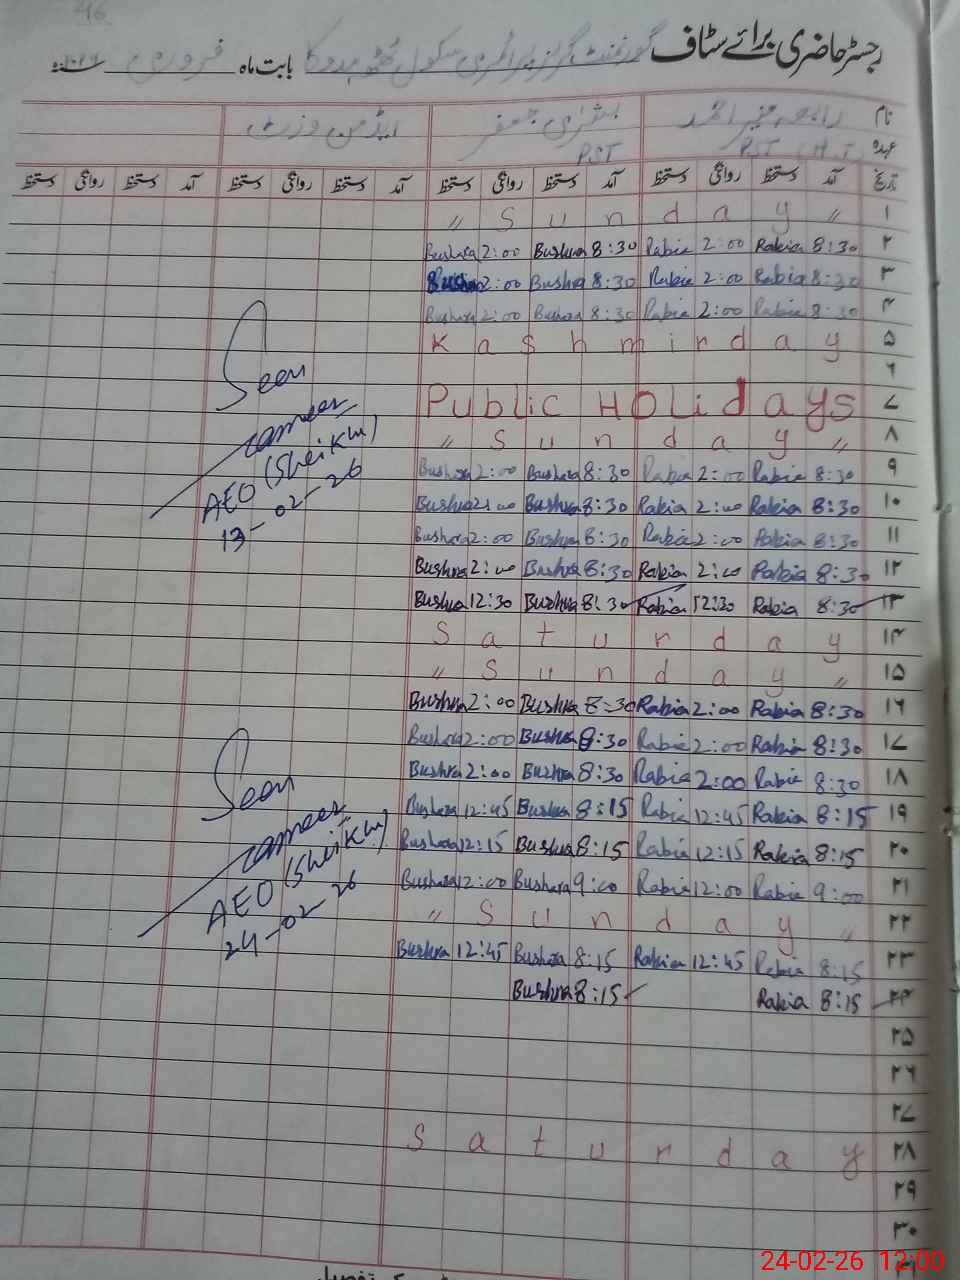 46
رجسٹر حاضری برائے سٹاف گورنمنٹ گرلز پرائمری سکول ٹھٹھہ بابت ماہ فروری
نام رابعہ منیر احمد بشریٰ جعفر
عہدہ PST (H.T) PST
تاریخ آمد دستخط روانگی دستخط آمد دستخط روانگی دستخط آمد دستخط روانگی دستخط آمد دستخط روانگی دستخط
۱ " S u n d a y "
۲ Bushra 2:00 Bushra 8:30 Rabia 2:00 Rabia 8:30
۳ Bushra 2:00 Bushra 8:30 Rabia 2:00 Rabia 8:30
۴ Bushra 2:00 Bushra 8:30 Rabia 2:00 Rabia 8:30
۵ K a s h m i r d a y
۶
۷ Public Holidays
۸ " S u n d a y "
۹ Bushra 2:00 Bushra 8:30 Rabia 2:00 Rabia 8:30
۱۰ Bushra 2:00 Bushra 8:30 Rabia 2:00 Rabia 8:30
۱۱ Bushra 2:00 Bushra 8:30 Rabia 2:00 Rabia 8:30
۱۲ Bushra 2:00 Bushra 8:30 Rabia 2:00 Rabia 8:30
۱۳ Bushra 12:30 Bushra 8:30 Rabia 12:30 Rabia 8:30
Seen
AEO (Sheikhu)
13-02-26
۱۴ S a t u r d a y
۱۵ " S u n d a y "
۱۶ Bushra 2:00 Bushra 8:30 Rabia 2:00 Rabia 8:30
۱۷ Bushra 2:00 Bushra 8:30 Rabia 2:00 Rabia 8:30
۱۸ Bushra 2:00 Bushra 8:30 Rabia 2:00 Rabia 8:30
۱۹ Bushra 12:45 Bushra 8:15 Rabia 12:45 Rabia 8:15
۲۰ Bushra 12:15 Bushra 8:15 Rabia 12:15 Rabia 8:15
۲۱ Bushra 12:00 Bushra 9:00 Rabia 12:00 Rabia 9:00
۲۲ " S u n d a y "
۲۳ Bushra 12:45 Bushra 8:15 Rabia 12:45 Rabia 8:15
۲۴ Bushra 8:15 Rabia 8:15
Seen
AEO (Sheikhu)
24-02-26
۲۵
۲۶
۲۷
۲۸ S a t u r d a y
۲۹
۳۰
24-02-26 12:00